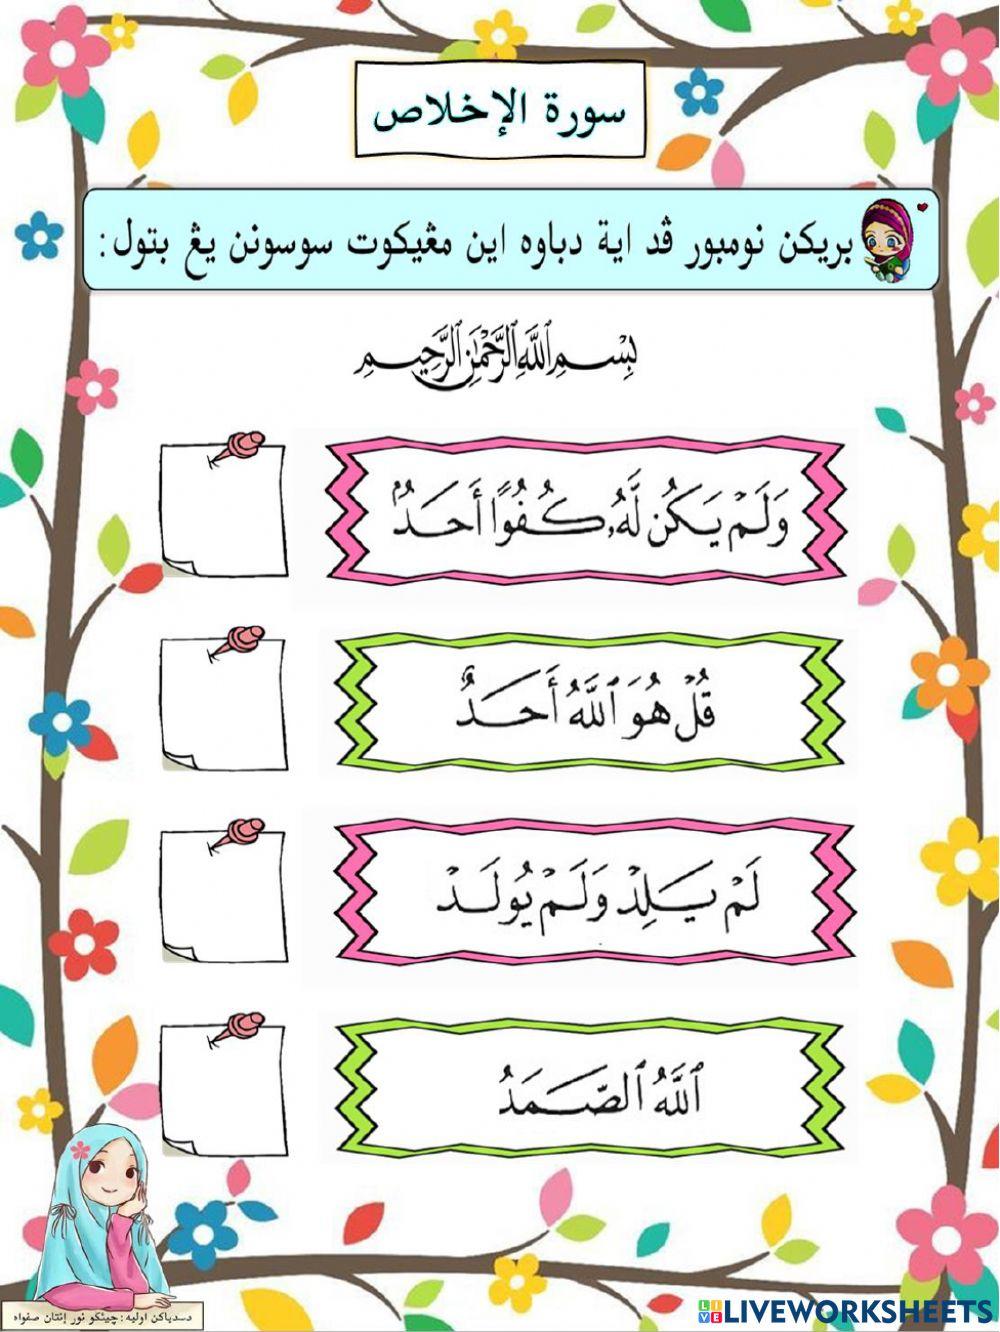 سورة الإخلاص
بريكن نومبور ڤد اية دباوه اين مڠيكوت سوسونن يڠ بتول:
بِسْمِ ٱللَّهِ ٱلرَّحْمَٰنِ ٱلرَّحِيمِ
وَلَمْ يَكُن لَّهُۥ كُفُوًا أَحَدٌۢ
قُلْ هُوَ ٱللَّهُ أَحَدٌ
لَمْ يَلِدْ وَلَمْ يُولَدْ
ٱللَّهُ ٱلصَّمَدُ
دسدياكن اوليه: چيئكو نور إنتان صفواه
LIVEWORKSHEETS